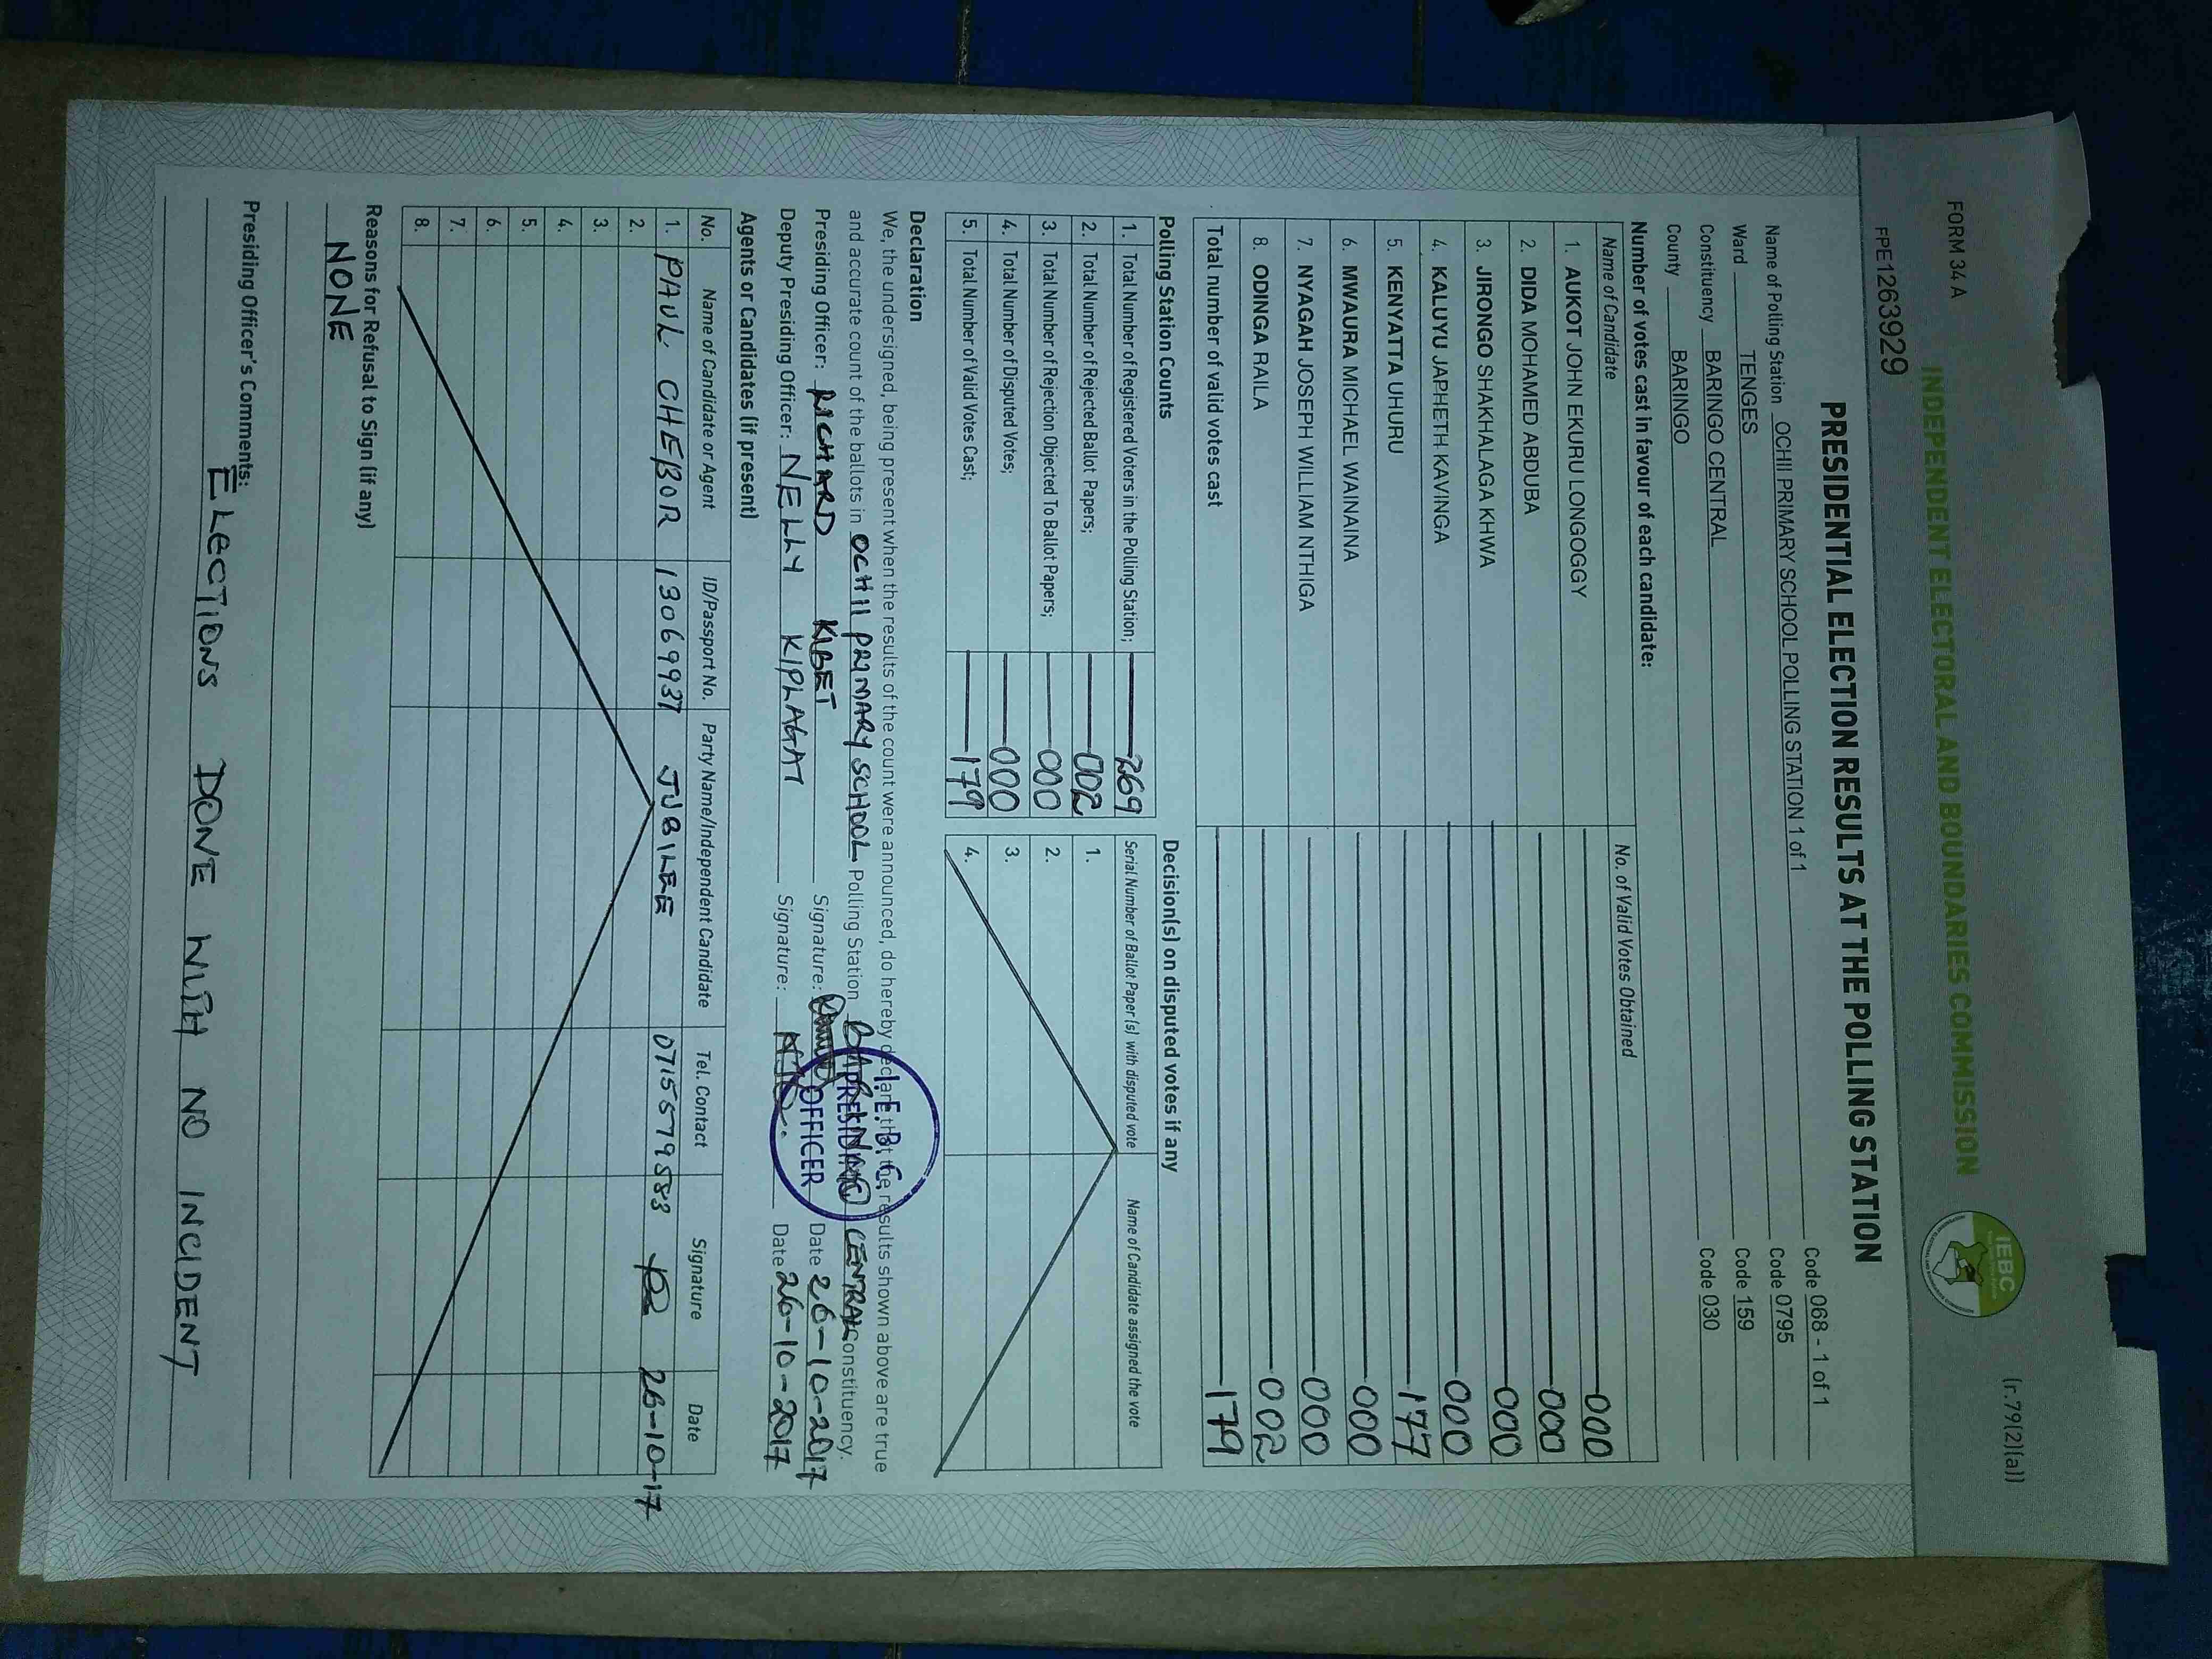 FORM 34 A
(r.79(2)(a))
INDEPENDENT ELECTORAL AND BOUNDARIES COMMISSION
IEBC
FPE1263929
PRESIDENTIAL ELECTION RESULTS AT THE POLLING STATION
Name of Polling Station OCHII PRIMARY SCHOOL POLLING STATION 1 of 1 Code 068 - 1 of 1
Ward TENGES Code 0795
Constituency BARINGO CENTRAL Code 159
County BARINGO Code 030
Number of votes cast in favour of each candidate:
Name of Candidate No. of Valid Votes Obtained
1. AUKOT JOHN EKURU LONGOGGY 000
2. DIDA MOHAMED ABDUBA 000
3. JIRONGO SHAKHALAGA KHWA 000
4. KALUYU JAPHETH KAVINGA 000
5. KENYATTA UHURU 177
6. MWAURA MICHAEL WAINAINA 000
7. NYAGAH JOSEPH WILLIAM NTHIGA 000
8. ODINGA RAILA 002
Total number of valid votes cast 179
Polling Station Counts
1. Total Number of Registered Voters in the Polling Station; 269
2. Total Number of Rejected Ballot Papers; 002
3. Total Number of Rejection Objected To Ballot Papers; 000
4. Total Number of Disputed Votes; 000
5. Total Number of Valid Votes Cast; 179
Decision(s) on disputed votes if any
Serial Number of Ballot Paper (s) with disputed vote Name of Candidate assigned the vote
1.
2.
3.
4.
Declaration
We, the undersigned, being present when the results of the count were announced, do hereby declare that the results shown above are true
and accurate count of the ballots in OCHII PRIMARY SCHOOL Polling Station BARINGO CENTRAL Constituency.
Presiding Officer: RICHARD KIBET Signature: Date 26-10-2017
Deputy Presiding Officer: NELLY KIPLAGAT Signature: Date 26-10-2017
I.E.B.C.
PRESIDING
OFFICER
Agents or Candidates (if present)
No. Name of Candidate or Agent ID/Passport No. Party Name/Independent Candidate Tel. Contact Signature Date
1. PAUL CHEBOR 13069937 JUBILEE 0715579583 26-10-17
2.
3.
4.
5.
6.
7.
8.
Reasons for Refusal to Sign (if any)
NONE
Presiding Officer's Comments:
ELECTIONS DONE WITH NO INCIDENT